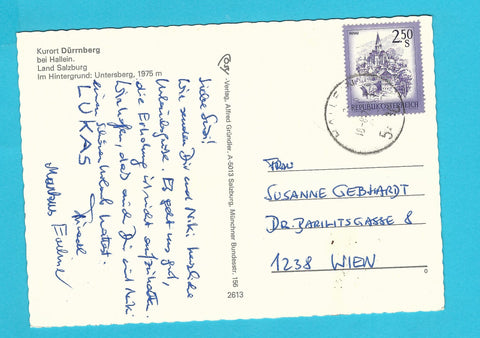 Kurort Dürrnberg
bei Hallein.
Land Salzburg
Im Hintergrund: Untersberg, 1975 m
Cosy-Verlag, Alfred Gründler, A-5013 Salzburg, Münchner Bundesstr. 156
2613
Liebe Susi!
Wir senden Dir und Niki herzliche
Urlaubsgrüße. Es geht uns gut,
die Erholung ist nicht aufzuhalten.
Wir hoffen, daß auch Du mit Niki
einen schönen Urlaub hattest.
LUKAS
Markus
2.50
S
REPUBLIK ÖSTERREICH
Frau
SUSANNE GEBHARDT
DR. BARILITSGASSE 8
1238 WIEN